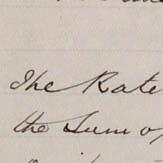 The Rate
the Sum of